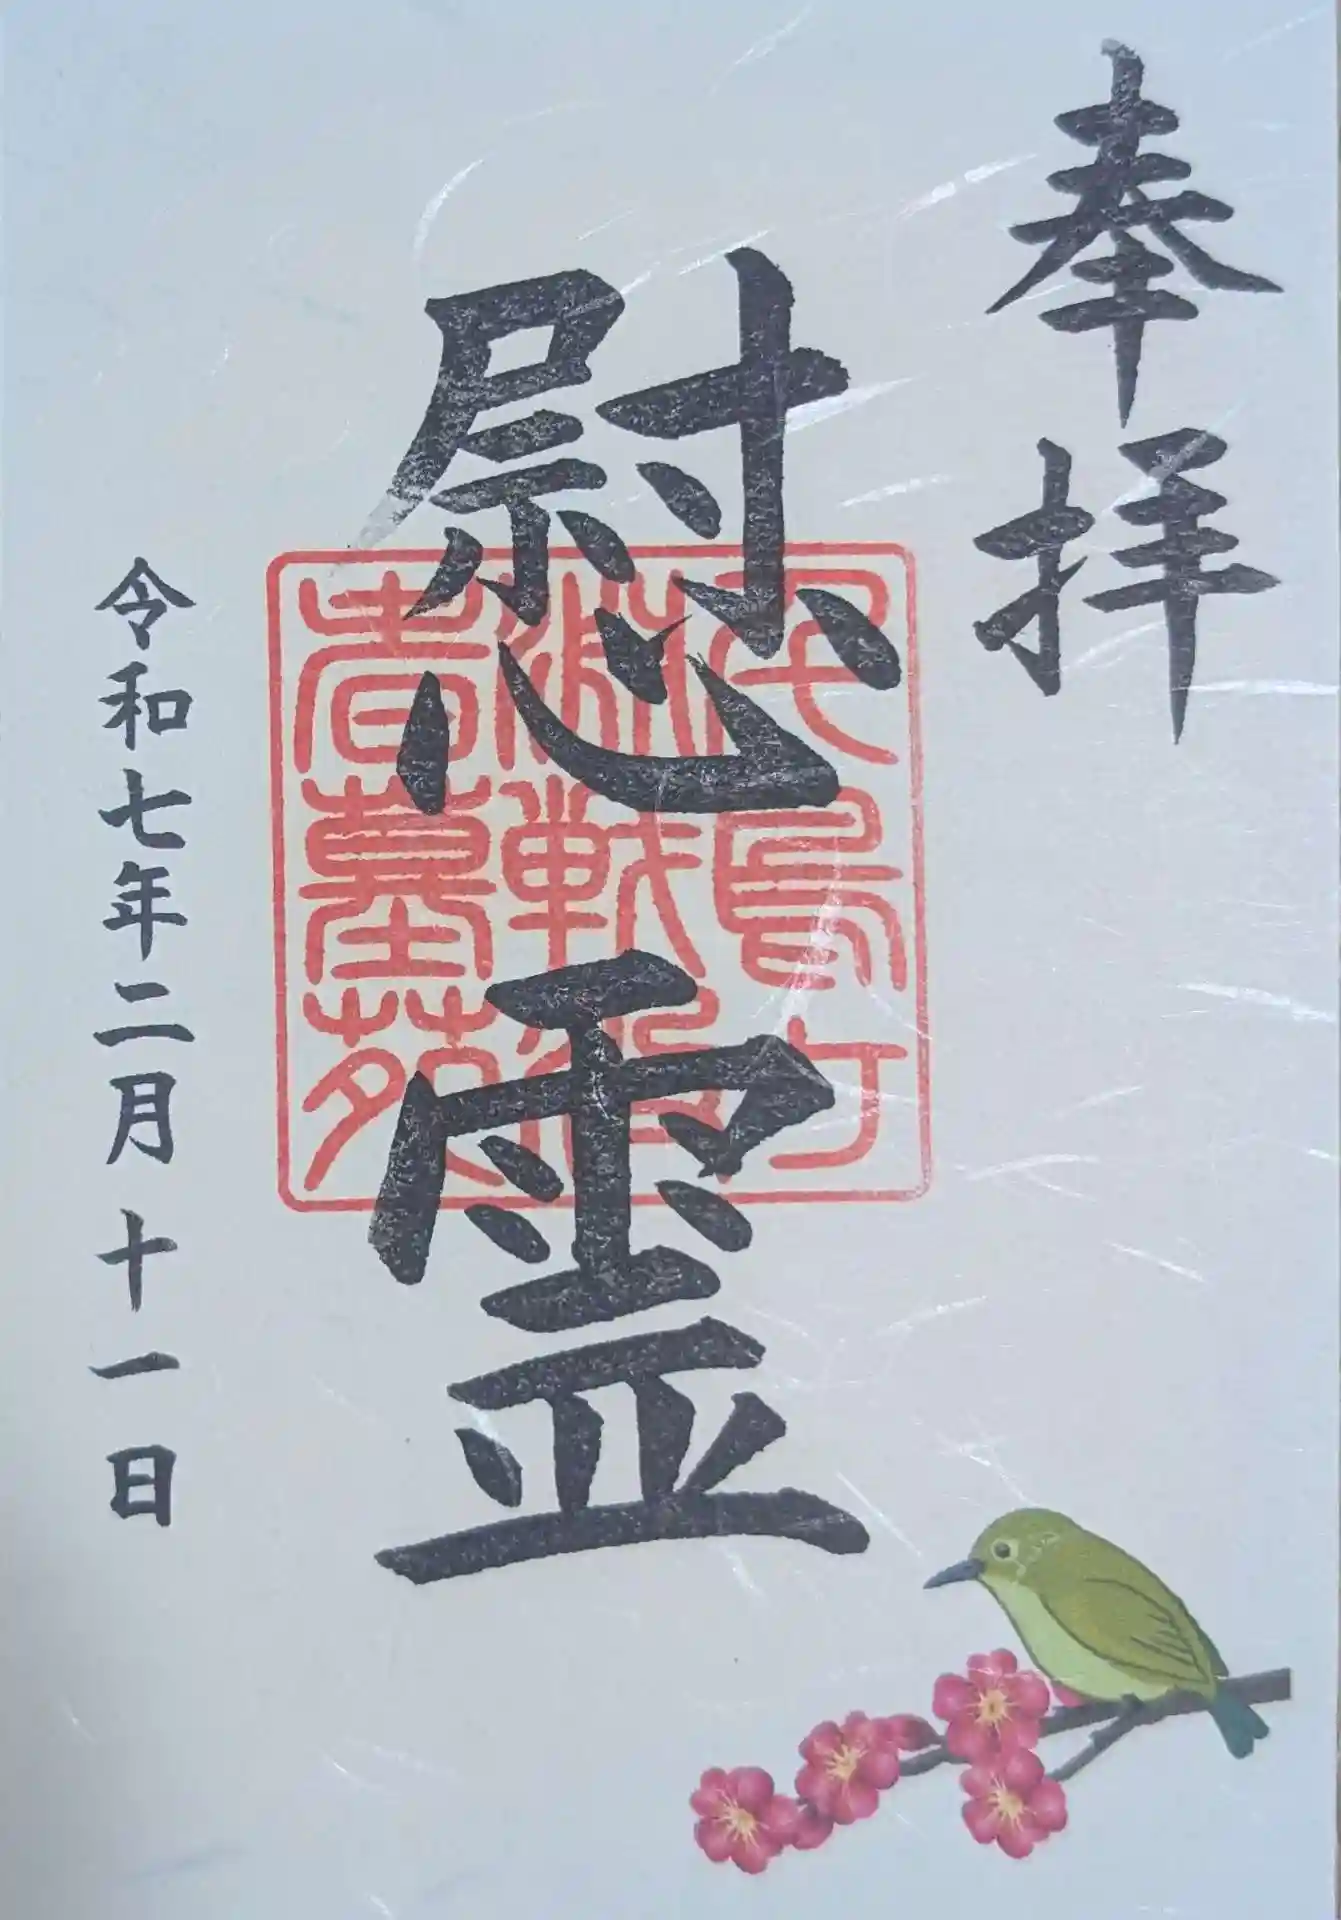 奉拝
慰霊
千鳥ヶ
淵戦没
者墓苑
令和七年二月十一日